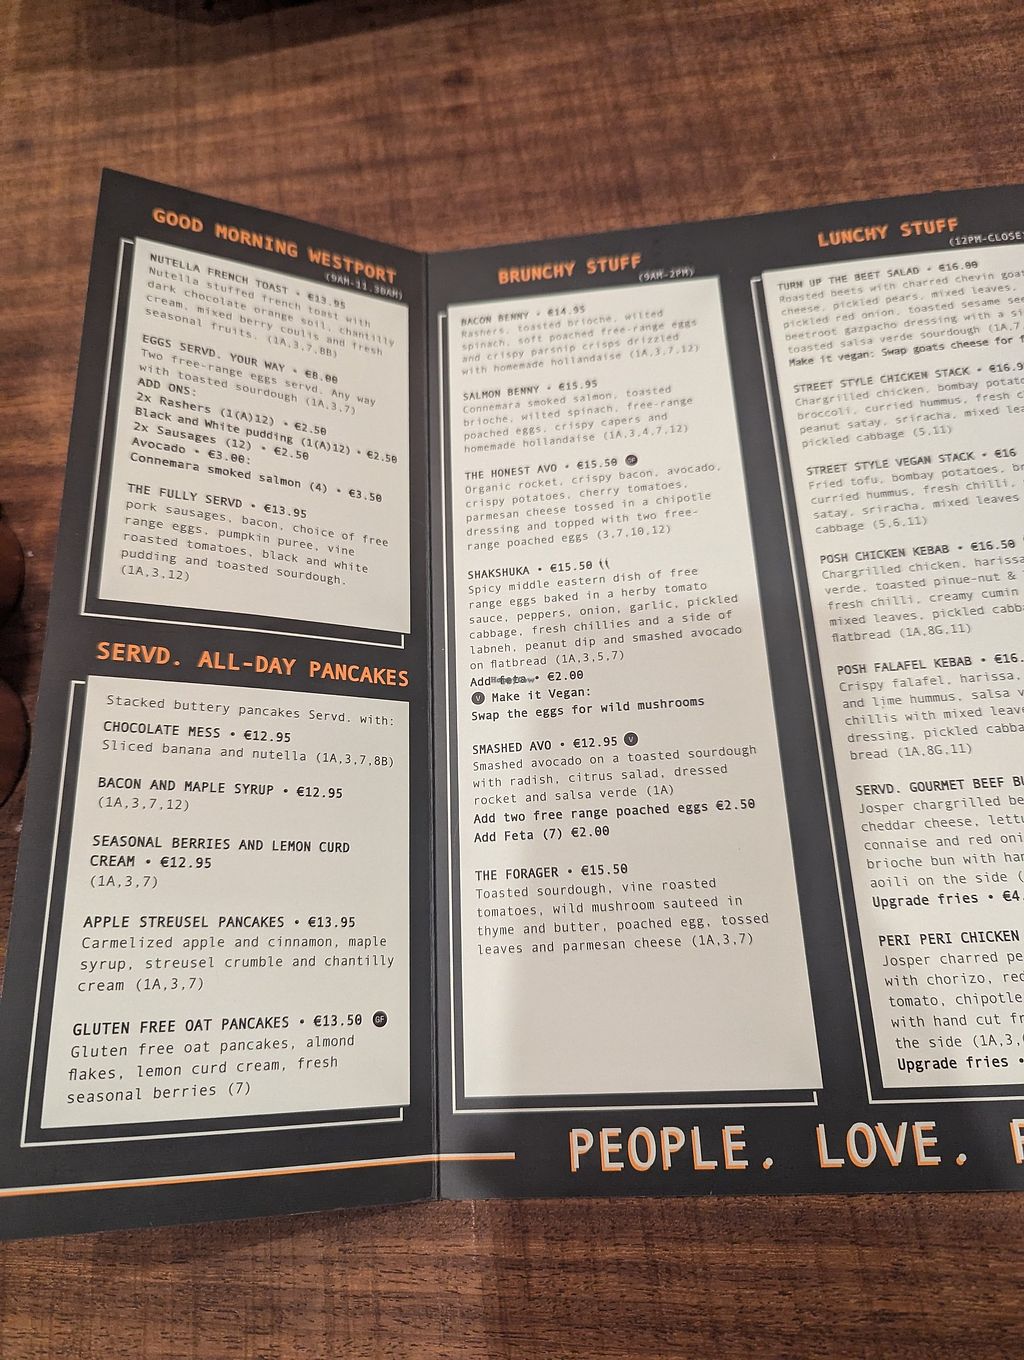 GOOD MORNING WESTPORT
(9AM-11.30AM)
NUTELLA FRENCH TOAST • €13.95
Nutella stuffed french toast with
dark chocolate orange soil, chantilly
cream, mixed berry coulis and fresh
seasonal fruits. (1A,3,7,8B)
EGGS SERVD. YOUR WAY • €8.00
Two free-range eggs servd. Any way
with toasted sourdough (1A,3,7)
ADD ONS:
2x Rashers (1(A)12) • €2.50
Black and White pudding (1(A)12) • €2.50
2x Sausages (12) • €2.50
Avocado • €3.00:
Connemara smoked salmon (4) • €3.50
THE FULLY SERVD • €13.95
pork sausages, bacon, choice of free
range eggs, pumpkin puree, vine
roasted tomatoes, black and white
pudding and toasted sourdough.
(1A,3,12)
SERVD. ALL-DAY PANCAKES
Stacked buttery pancakes Servd. with:
CHOCOLATE MESS • €12.95
Sliced banana and nutella (1A,3,7,8B)
BACON AND MAPLE SYRUP • €12.95
(1A,3,7,12)
SEASONAL BERRIES AND LEMON CURD
CREAM • €12.95
(1A,3,7)
APPLE STREUSEL PANCAKES • €13.95
Carmelized apple and cinnamon, maple
syrup, streusel crumble and chantilly
cream (1A,3,7)
GLUTEN FREE OAT PANCAKES • €13.50 GF
Gluten free oat pancakes, almond
flakes, lemon curd cream, fresh
seasonal berries (7)
BRUNCHY STUFF
(9AM-2PM)
BACON BENNY • €14.95
Rashers, toasted brioche, wilted
spinach, soft poached free-range eggs
and crispy parsnip crisps drizzled
with homemade hollandaise (1A,3,7,12)
SALMON BENNY • €15.95
Connemara smoked salmon, toasted
brioche, wilted spinach, free-range
poached eggs, crispy capers and
homemade hollandaise (1A,3,4,7,12)
THE HONEST AVO • €15.50 GF
Organic rocket, crispy bacon, avocado,
crispy potatoes, cherry tomatoes,
parmesan cheese tossed in a chipotle
dressing and topped with two free-
range poached eggs (3,7,10,12)
SHAKSHUKA • €15.50
Spicy middle eastern dish of free
range eggs baked in a herby tomato
sauce, peppers, onion, garlic, pickled
cabbage, fresh chillies and a side of
labneh, peanut dip and smashed avocado
on flatbread (1A,3,5,7)
Add Feta • €2.00
V Make it Vegan:
Swap the eggs for wild mushrooms
SMASHED AVO • €12.95 V
Smashed avocado on a toasted sourdough
with radish, citrus salad, dressed
rocket and salsa verde (1A)
Add two free range poached eggs €2.50
Add Feta (7) €2.00
THE FORAGER • €15.50
Toasted sourdough, vine roasted
tomatoes, wild mushroom sauteed in
thyme and butter, poached egg, tossed
leaves and parmesan cheese (1A,3,7)
LUNCHY STUFF
(12PM-CLOSE)
TURN UP THE BEET SALAD • €16.00
Roasted beets with charred chevin goat
cheese, pickled pears, mixed leaves,
pickled red onion, toasted sesame
beetroot gazpacho dressing with a
toasted salsa verde sourdough (1A,7
Make it vegan: Swap goats cheese for
STREET STYLE CHICKEN STACK • €16.9
Chargrilled chicken, bombay potato
broccoli, curried hummus, fresh
peanut satay, sriracha, mixed
pickled cabbage (5,11)
STREET STYLE VEGAN STACK • €16
Fried tofu, bombay potatoes,
curried hummus, fresh chilli,
satay, sriracha, mixed leaves
cabbage (5,6,11)
POSH CHICKEN KEBAB • €16.50
Chargrilled chicken, harissa
verde, toasted pinue-nut &
fresh chilli, creamy cumin
mixed leaves, pickled cabb
flatbread (1A,8G,11)
POSH FALAFEL KEBAB • €16.
Crispy falafel, harissa,
and lime hummus, salsa
chillis with mixed leave
dressing, pickled cabba
bread (1A,8G,11)
SERVD. GOURMET BEEF BU
Josper chargrilled be
cheddar cheese, lettu
connaise and red oni
brioche bun with han
aoili on the side (
Upgrade fries • €4.
PERI PERI CHICKEN
Josper charred pe
with chorizo, red
tomato, chipotle
with hand cut fr
the side (1A,3,
Upgrade fries •
PEOPLE. LOVE.